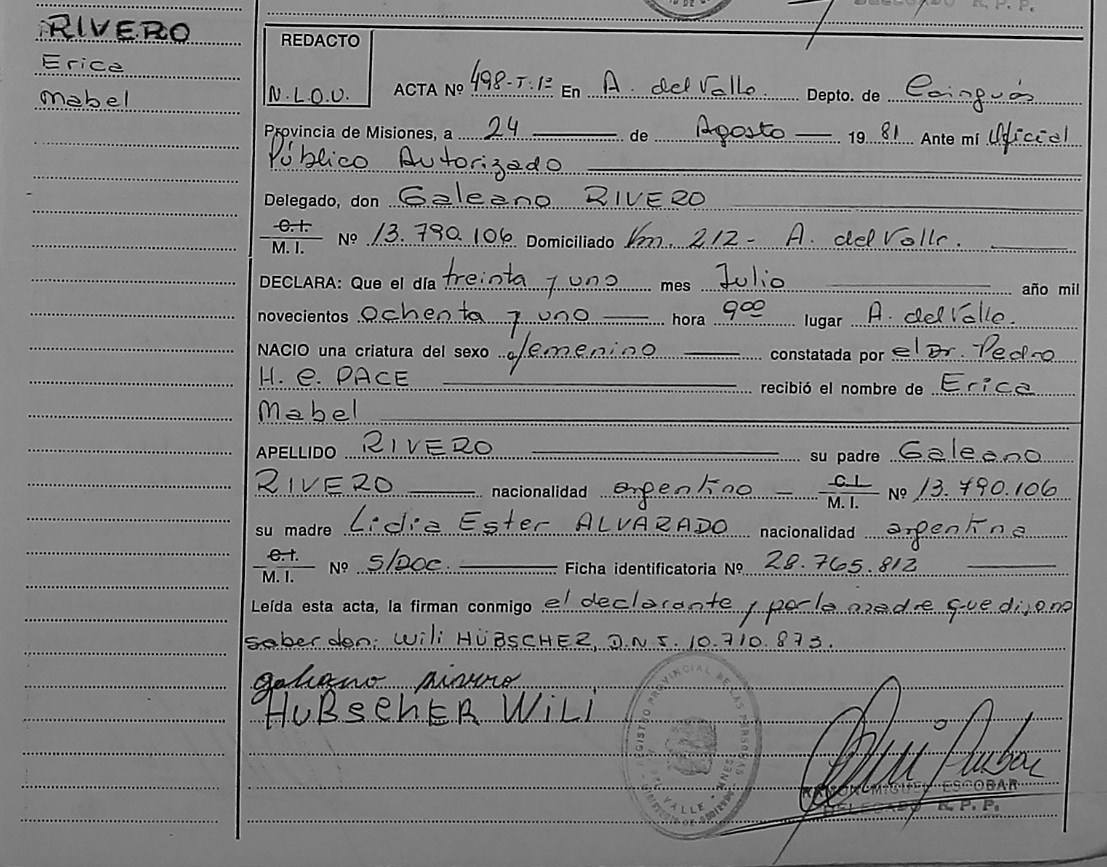 DELEGADO R. P. P.
RIVERO
Erica
Mabel
REDACTO
N.L.O.U.
ACTA Nº 498-T.1º En A. del Valle. Depto. de Cainguás
Provincia de Misiones, a 24 de Agosto 1981 Ante mí Oficial
Público Autorizado
Delegado, don Galeano RIVERO
C.I. M. I. Nº 13.790.106 Domiciliado Km. 212- A. del Valle.
DECLARA: Que el día treinta y uno mes Julio año mil
novecientos ochenta y uno hora 9 00 lugar A. del Valle.
NACIO una criatura del sexo femenino constatada por el Dr. Pedro
H. C. PACE recibió el nombre de Erica
Mabel
APELLIDO RIVERO su padre Galeano
RIVERO nacionalidad argentino C.I. M. I. Nº 13.790.106
su madre Lidia Ester ALVARADO nacionalidad argentina
C.I. M. I. Nº S/DOC. Ficha identificatoria Nº 28.765.812
Leída esta acta, la firman conmigo el declarante y por la madre que dijo no
saber don: Wili HÜBSCHER, D.N.I. 10.710.873.
galiano rivero
HUBSCHER WILI
REGISTRO PROVINCIAL DE LAS PERSONAS
DEL VALLE - MNES
RAMON MIGUEL ESCOBAR
DELEGADO R. P. P.